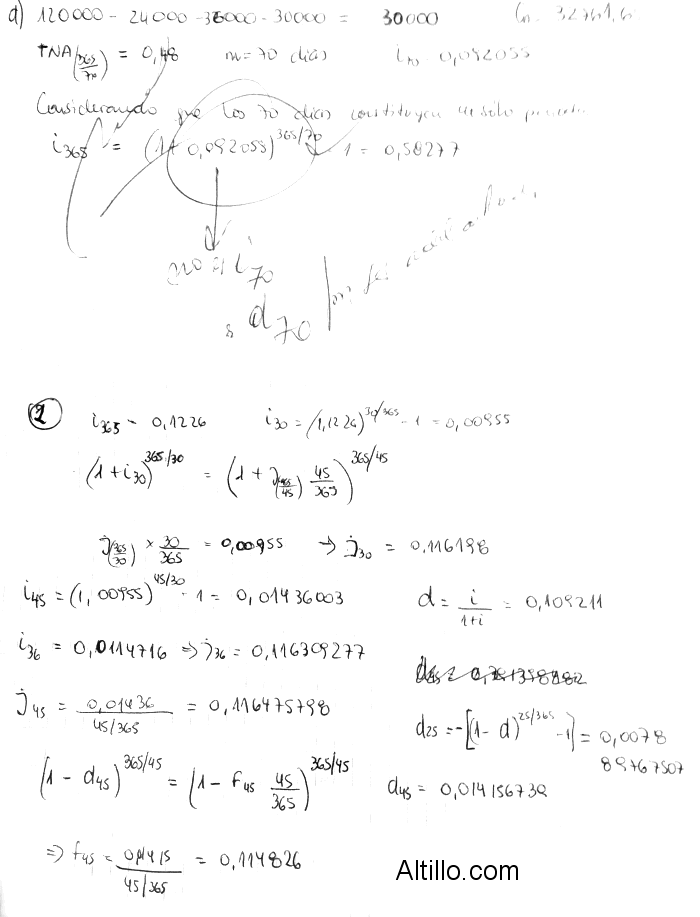 d) 120000 - 24000 - 36000 - 30000 = 30000
TNA(365/70) = 0,48 m = 70 dias i70 0,092055
Considerando que los 70 dias constituyen un solo
i365 = (1 + 0,092055)^365/70 - 1 = 0,58277
no es i70
d70
2 i365 = 0,1226 i30 = (1,1226)^30/365 - 1 = 0,00955
(1 + i30)^365/30 = (1 + J(365/45) 45/365)^365/45
J(365/30) × 30/365 = 0,00955 → J30 = 0,116198
i45 = (1,00955)^45/30 - 1 = 0,01436003 d = i/1+i = 0,109211
i36 = 0,0114716 ⇒ J36 = 0,116309277
J45 = 0,01436/45/365 = 0,116475798 d25 = -[(1 - d)^25/365 - 1] = 0,0078
89767507
(1 - d45)^365/45 = (1 - f45 45/365)^365/45 d45 = 0,014156739
⇒ f45 = 0,01415/45/365 = 0,114826
Altillo.com